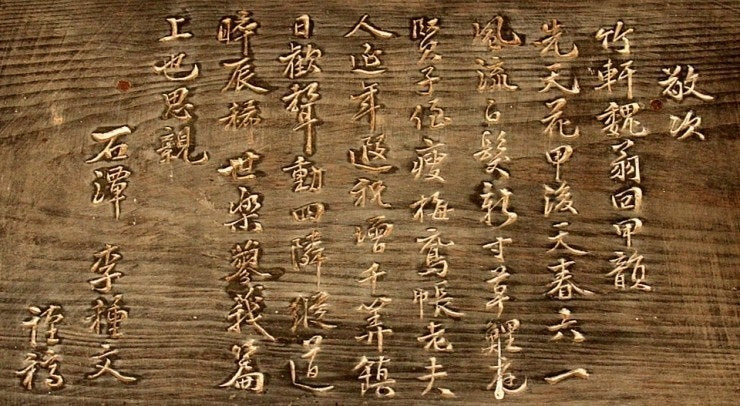 敬次
竹軒魏翁回甲韻
先天花甲後天春六一
風流白髮新寸草鯉庭
賢子侄瘦梅鴛帳老夫
人延年遐祝增千筭鎭
日歡聲動四隣縱道
晬辰稀世樂蓼莪篇
上也思親
石潭 李種文
謹稿